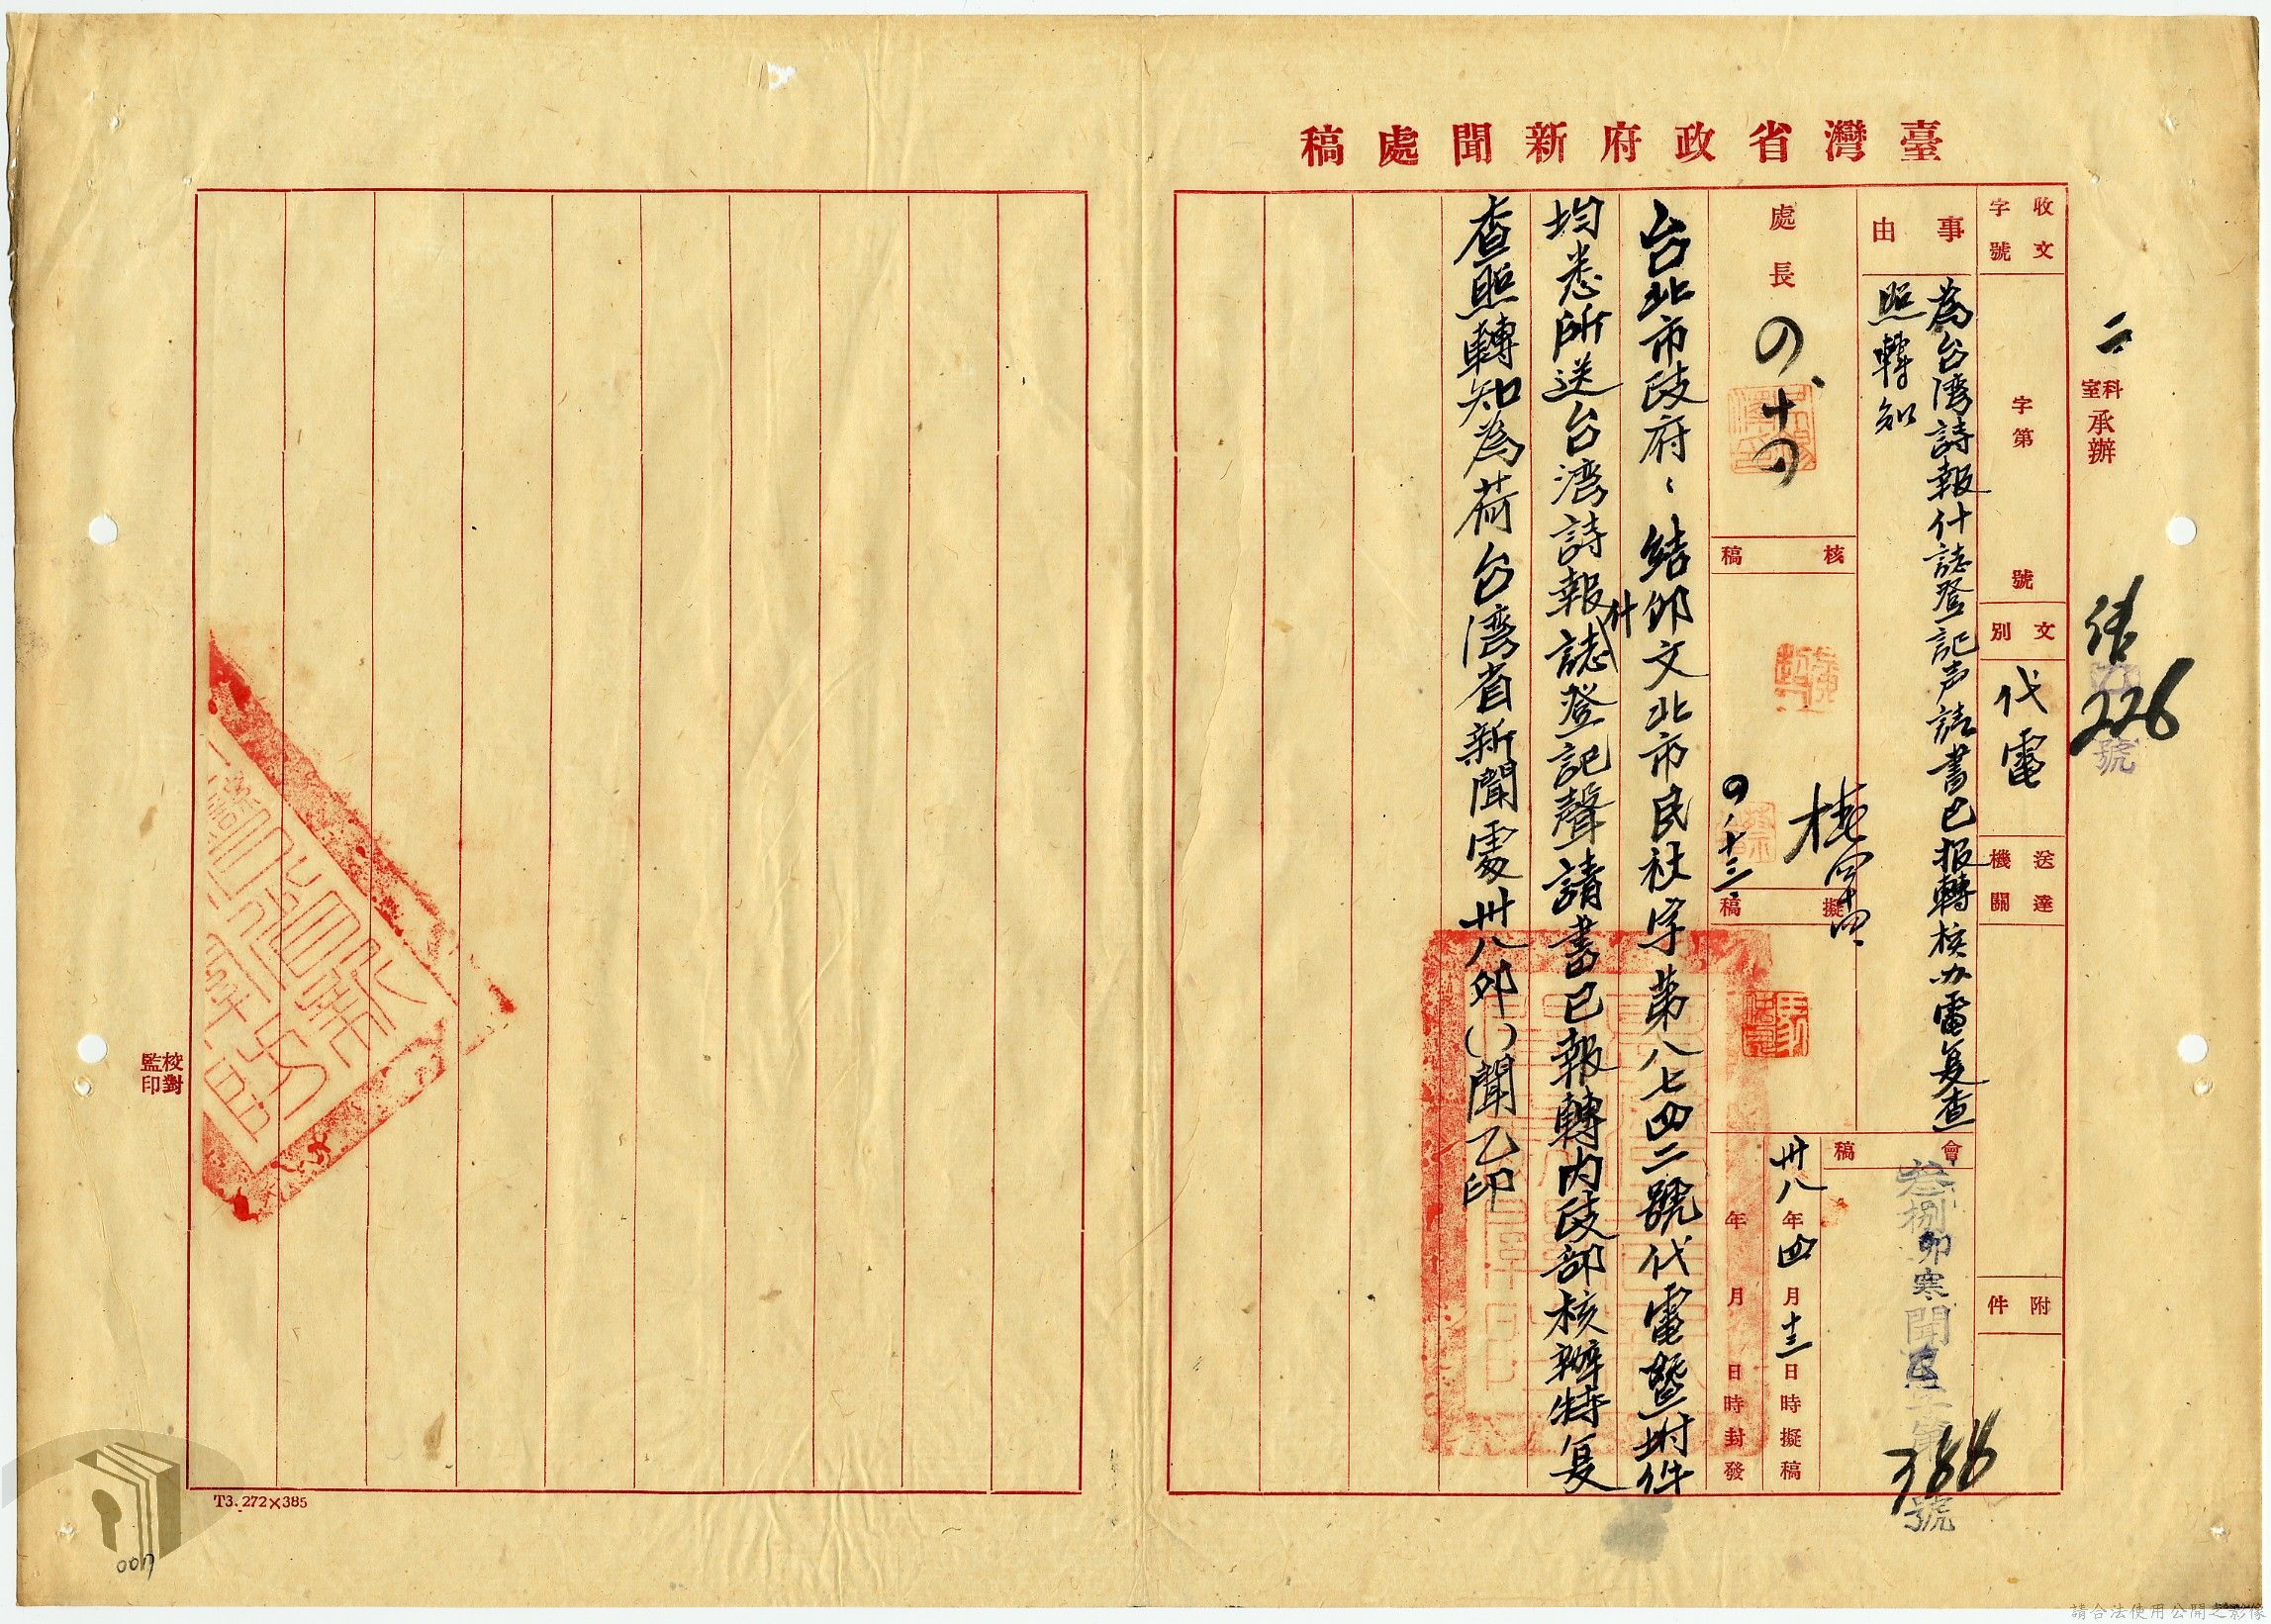 臺灣省政府新聞處稿
二
科室承辦
226
號
收文字號
字第
號
文別
代電
送達機關
附件
事由
為台湾詩報什誌登記声請書已报轉核办電复查
照轉知
會稿
叁捌卯寒聞
號
處長
核稿
擬稿
卅八年四月十三日時擬稿
年月日時封發
台北市政府：结卯文北市民社字第八七四二號代電暨附件
均悉所送台湾詩報什誌登記聲請書已報轉内政部核辦特复
查照轉知為荷台湾省新聞處卅八卯()聞乙印
校對
監印
T3. 272×385
007
請合法使用公開之影像